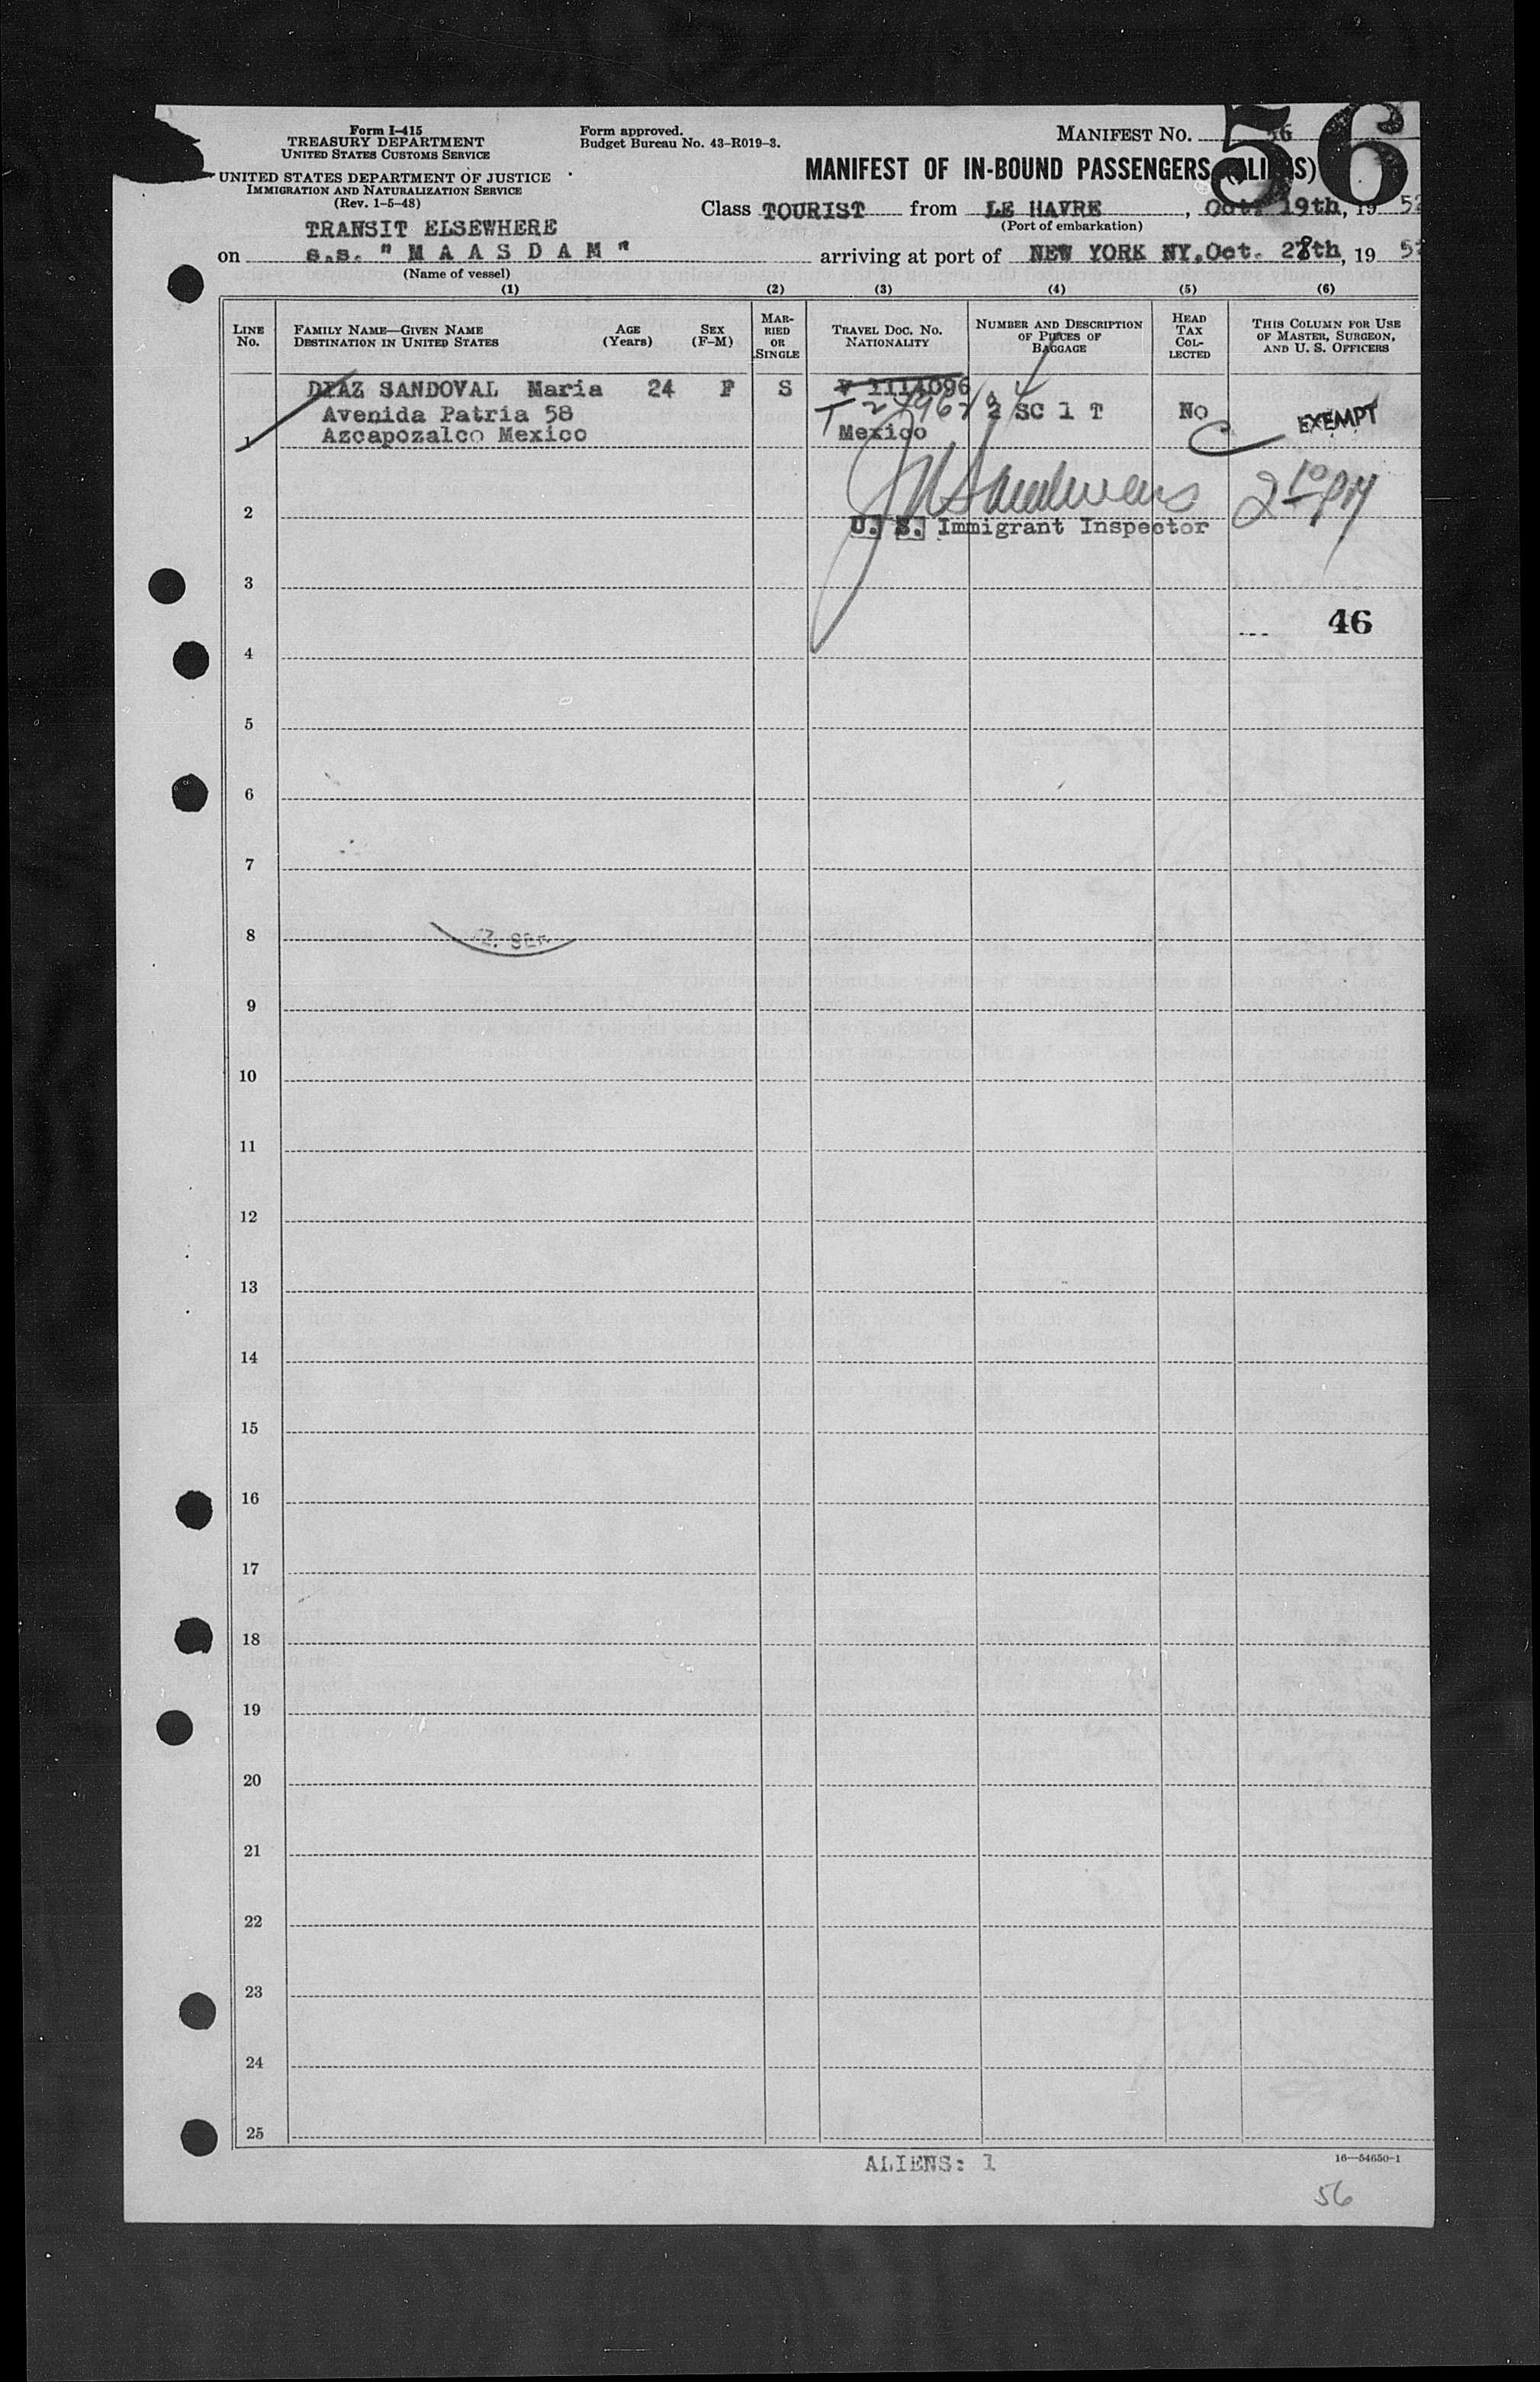 Form I-415
TREASURY DEPARTMENT
UNITED STATES CUSTOMS SERVICE
UNITED STATES DEPARTMENT OF JUSTICE
IMMIGRATION AND NATURALIZATION SERVICE
(Rev. 1-5-48)
Form approved.
Budget Bureau No. 43-R019-3.
MANIFEST NO. 56
56
MANIFEST OF IN-BOUND PASSENGERS (ALIENS)
Class TOURIST from LE HAVRE, Oct. 19th, 19 52
(Port of embarkation)
TRANSIT ELSEWHERE
on s.s. " M A A S D A M " arriving at port of NEW YORK NY. Oct. 28th, 19 52
(Name of vessel)
(1) (2) (3) (4) (5) (6)
LINE No.
FAMILY NAME—GIVEN NAME
DESTINATION IN UNITED STATES
AGE (Years)
SEX (F-M)
MARRIED OR SINGLE
TRAVEL DOC. NO. NATIONALITY
NUMBER AND DESCRIPTION OF PIECES OF BAGGAGE
HEAD TAX COLLECTED
THIS COLUMN FOR USE OF MASTER, SURGEON, AND U. S. OFFICERS
DIAZ SANDOVAL Maria 24 F S V 1114096
Avenida Patria 58 2 SC 1 T No EXEMPT
1 Azcapozalco Mexico Mexico
2 10 PM
2 U. S. Immigrant Inspector
3
46
4
5
6
7
8
9
10
11
12
13
14
15
16
17
18
19
20
21
22
23
24
25
ALIENS: 1
16—54650-1
56